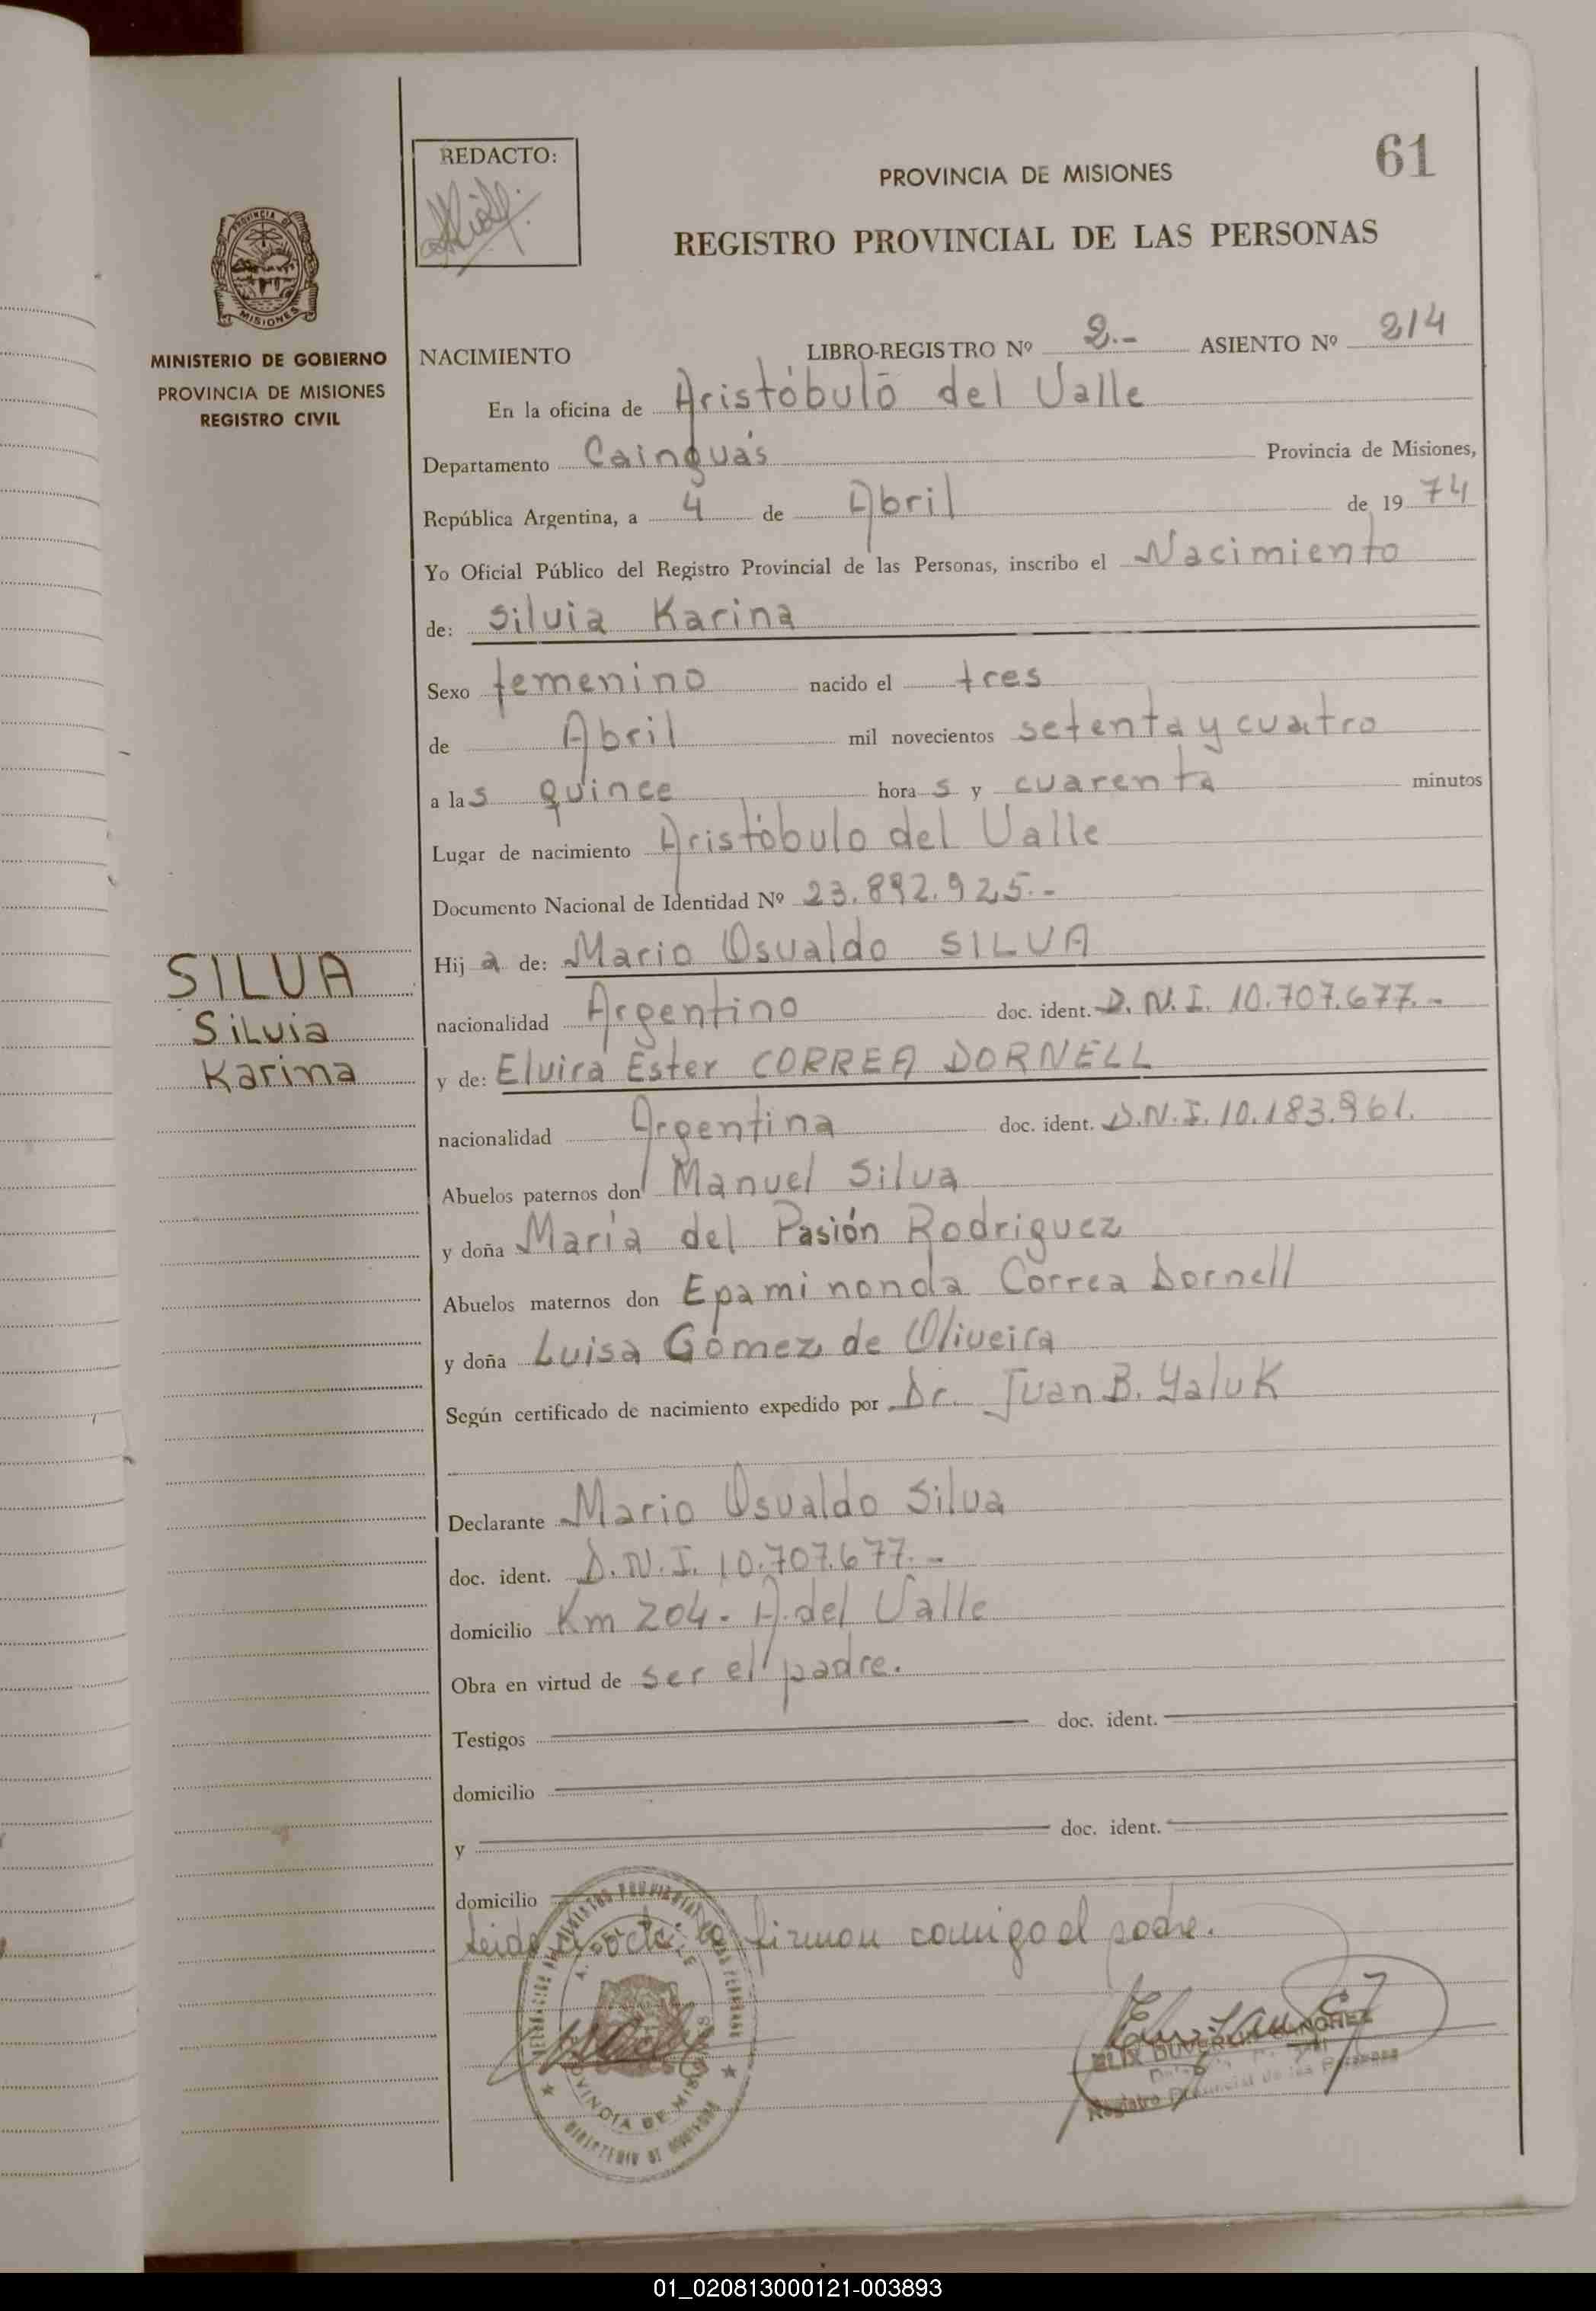 61
REDACTO:
PROVINCIA DE MISIONES
REGISTRO PROVINCIAL DE LAS PERSONAS
PROVINCIA DE
MISIONES
MINISTERIO DE GOBIERNO
PROVINCIA DE MISIONES
REGISTRO CIVIL
NACIMIENTO LIBRO-REGISTRO Nº 2.- ASIENTO Nº 214
En la oficina de Aristóbulo del Valle
Departamento Cainguás Provincia de Misiones,
República Argentina, a 4 de Abril de 1974
Yo Oficial Público del Registro Provincial de las Personas, inscribo el Nacimiento
de: Silvia Karina
Sexo femenino nacido el tres
de Abril mil novecientos setenta y cuatro
a las quince horas y cuarenta minutos
Lugar de nacimiento Aristóbulo del Valle
Documento Nacional de Identidad Nº 23.892.925.-
Hija de: Mario Osvaldo SILVA
nacionalidad Argentino doc. ident. D.N.I. 10.707.677.-
y de: Elvira Ester CORREA DORNELL
nacionalidad Argentina doc. ident. D.N.I. 10.183.961.
Abuelos paternos don Manuel Silva
y doña María del Pasión Rodriguez
Abuelos maternos don Epaminonda Correa Dornell
y doña Luisa Gómez de Oliveira
Según certificado de nacimiento expedido por Dr. Juan B. Yaluk
Declarante Mario Osvaldo Silva
doc. ident. D.N.I. 10.707.677.-
domicilio Km 204. A. del Valle
Obra en virtud de ser el padre.
Testigos doc. ident.
domicilio
y doc. ident.
domicilio
Leida el acta, la firman comigo el padre.
SILVA
Silvia
Karina
PROVINCIA DE MISIONES
Registro Provincial de las Personas
01_020813000121-003893